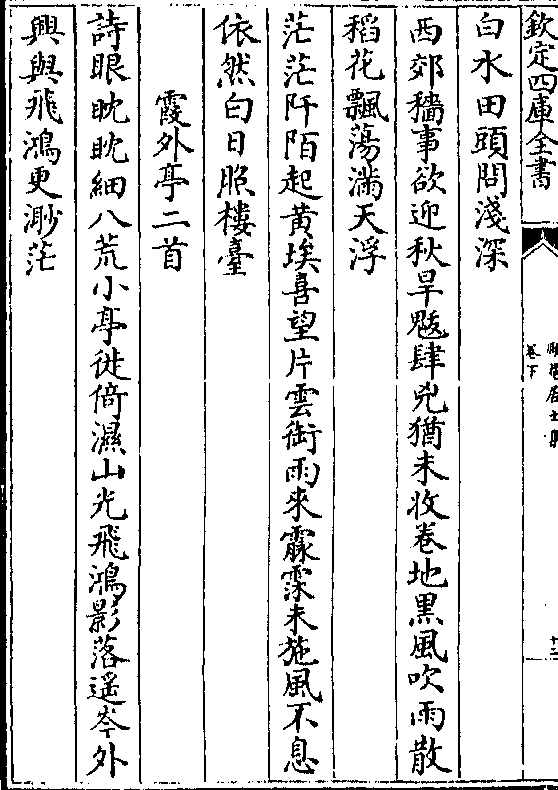 欽定四庫全書
卷下
白水田頭問淺深
西郊穡事欲迎秋旱魃肆兇猶未收卷地黒風吹雨散
稻花飄蕩滿天浮
茫茫阡陌起黄埃喜望片雲銜雨來霢霂未施風不息
依然白日照樓臺
霞外亭二首
詩眼眈眈細八荒小亭徙倚濕山光飛鴻影落遥岑外
興與飛鴻更渺茫